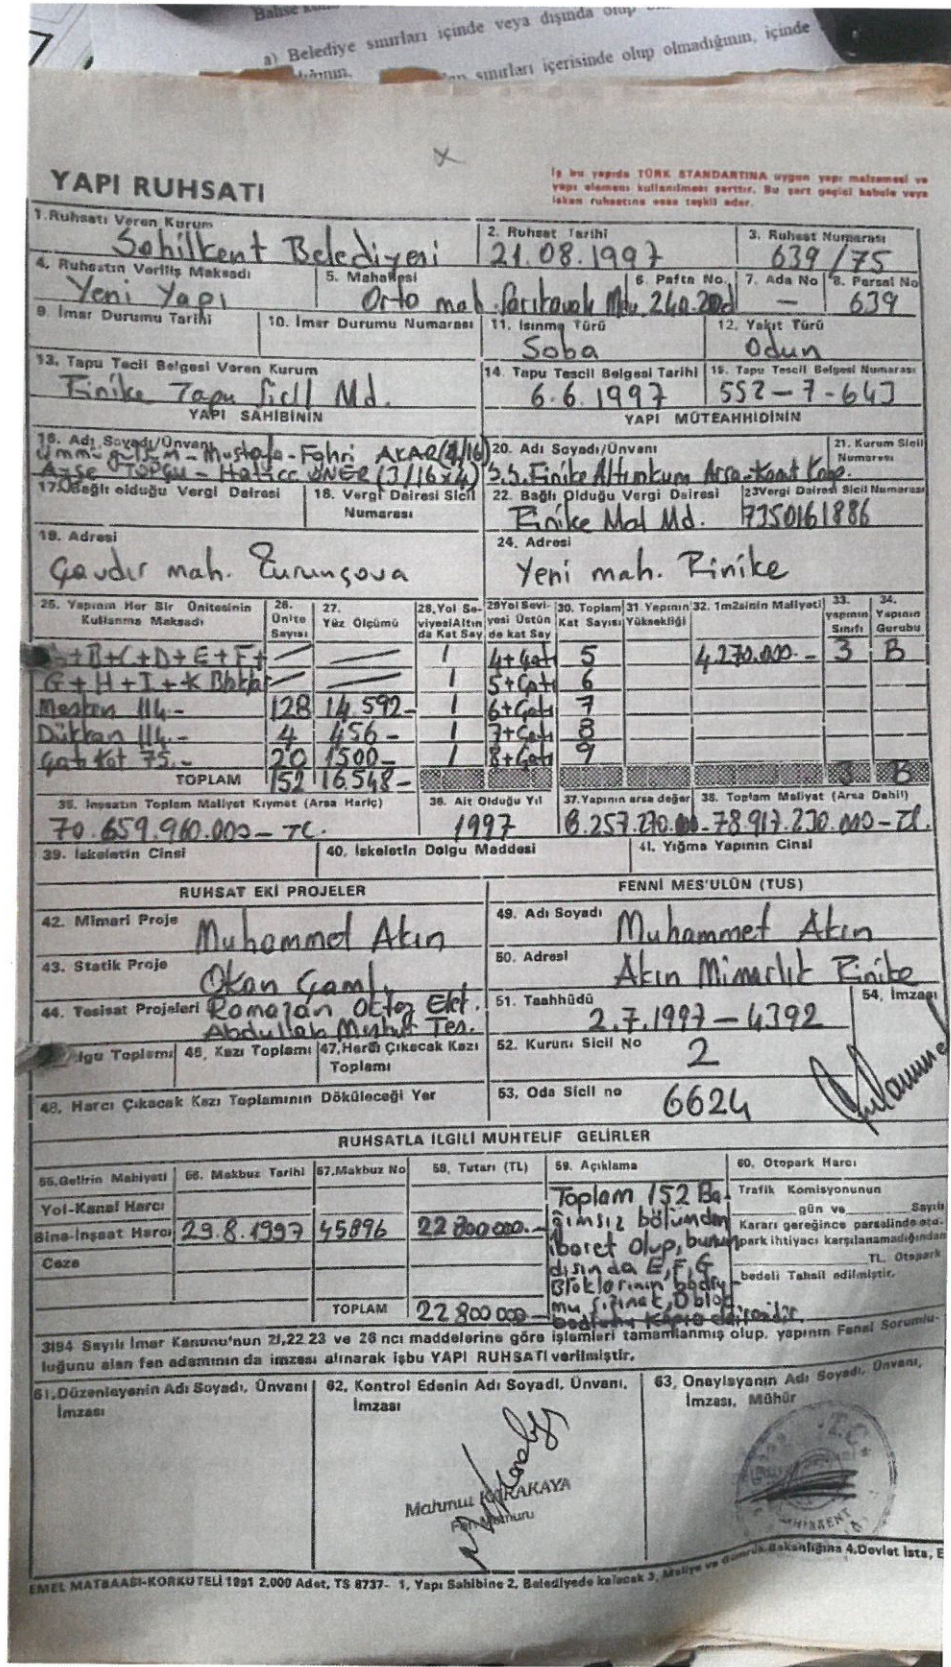 a) Belediye sınırları içinde veya dışında olup
sınırları içerisinde olup olmadığının, içinde
x
YAPI RUHSATI
İş bu yapıda TÜRK STANDARTINA uygun yapı malzemesi ve
yapı elemanı kullanılması şarttır. Bu şart geçici kabule veya
iskan ruhsatına esas teşkil eder.
1.Ruhsatı Veren Kurum
Sahilkent Belediyesi
2. Ruhsat Tarihi
21.08.1997
3. Ruhsat Numarası
639/75
4. Ruhsatın Veriliş Maksadı
Yeni Yapı
5. Mahallesi
Orta mah.
6. Pafta No.
7. Ada No
—
8. Parsel No
639
9. İmar Durumu Tarihi
10. İmar Durumu Numarası
11. Isınma Türü
Soba
12. Yakıt Türü
Odun
13. Tapu Tecil Belgesi Veren Kurum
Finike Tapu Sicil Md.
14. Tapu Tescil Belgesi Tarihi
6.6.1997
15. Tapu Tescil Belgesi Numarası
552-7-643
YAPI SAHİBİNİN
YAPI MÜTEAHHİDİNİN
16. Adı Soyadı/Ünvanı
Ümmügülsüm - Mustafa - Fahri AKAR
Ayşe TOPÇU - Hatice ÜNER (3/16x4)
20. Adı Soyadı/Ünvanı
S.S. Finike Altınkum Arsa-Konut Koop.
21. Kurum Sicil
Numarası
17. Bağlı olduğu Vergi Dairesi
18. Vergi Dairesi Sicil
Numarası
22. Bağlı Olduğu Vergi Dairesi
Finike Mal Md.
23Vergi Dairesi Sicil Numarası
7350161886
19. Adresi
Çavdır mah. Turunçova
24. Adresi
Yeni mah. Finike
25. Yapının Her Bir Ünitesinin
Kullanma Maksadı
26.
Ünite
Sayısı
27.
Yüz Ölçümü
28.Yol Se-
viyesiAltın
da Kat Say
29Yol Sevi-
yesi Üstün
de kat Say
30. Toplam
Kat Sayısı
31 Yapının
Yüksekliği
32. 1m2sinin Maliyeti
33.
yapının
Sınıfı
34.
Yapının
Gurubu
+B+C+D+E+F+ 1 4+Çatı 5 4.270.000.- 3 B
G+H+I+K Bloklar 1 5+Çatı 6
Mesken 114.- 128 14.592- 1 6+Çatı 7
Dükkan 114.- 4 456- 1 7+Çatı 8
Çatı Kat 75.- 20 1500- 1 8+Çatı 9
TOPLAM 152 16.548- 3 B
35. İnşaatın Toplam Maliyet Kıymet (Arsa Hariç)
70.659.960.000- TL.
36. Ait Olduğu Yıl
1997
37.Yapının arsa değer
8.257.270.000-
38. Toplam Maliyat (Arsa Dahil)
78.917.230.000-TL.
39. İskeletin Cinsi
40. İskeletin Dolgu Maddesi
41. Yığma Yapının Cinsi
RUHSAT EKİ PROJELER
FENNİ MES'ULÜN (TUS)
42. Mimari Proje
Muhammet Akın
49. Adı Soyadı
Muhammet Akın
43. Statik Proje
Okan Çamlı
50. Adresi
Akın Mimarlık Finike
44. Tesisat Projeleri
Ramazan Oktoz Elkt.
Abdullah Tes.
51. Taahhüdü
2.7.1997-4392
54. İmzası
lgu Toplamı
46. Kazı Toplamı
47.Harci Çıkacak Kazı
Toplamı
52. Kurum Sicil No
2
48. Harcı Çıkacak Kazı Toplamının Döküleceği Yer
53. Oda Sicil no
6624
RUHSATLA İLGİLİ MUHTELİF GELİRLER
55.Gelirin Mahiyeti
56. Makbuz Tarihi
57.Makbuz No
58. Tutarı (TL)
59. Açıklama
60. Otopark Harcı
Yol-Kanal Harcı
Bina-İnşaat Harcı 29.8.1997 45896 22 800 000.-
Ceza
TOPLAM 22 800 000-
Toplam 152 Ba-
ğımsız bölümden
ibaret olup, bunun
dışında E,F,G
Bloklarının bodru-
mu sığınak, D blok
bodrumu
Trafik Komisyonunun
gün ve Sayılı
Kararı gereğince parselinde oto-
park ihtiyacı karşılanamadığından
TL. Otopark
bedeli Tahsil edilmiştir.
3194 Sayılı İmar Kanunu'nun 21,22 23 ve 26 ncı maddelerine göre işlemleri tamamlanmış olup, yapının Fenni Sorumlu-
luğunu alan fen adamının da imzası alınarak işbu YAPI RUHSATI verilmiştir.
61.Düzenleyenin Adı Soyadı, Ünvanı
İmzası
62. Kontrol Edenin Adı Soyadı, Ünvanı,
İmzası
63. Onaylayanın Adı Soyadı, Ünvanı,
İmzası, Mühür
Mahmut KARAKAYA
Fen Memuru
T.C.
EMEL MATBAASI-KORKUTELİ 1991 2.000 Adet, TS 8737- 1, Yapı Sahibine 2, Belediyede kalacak 3, Maliye ve Gümrük Bakanlığına 4.Devlet İsta, E